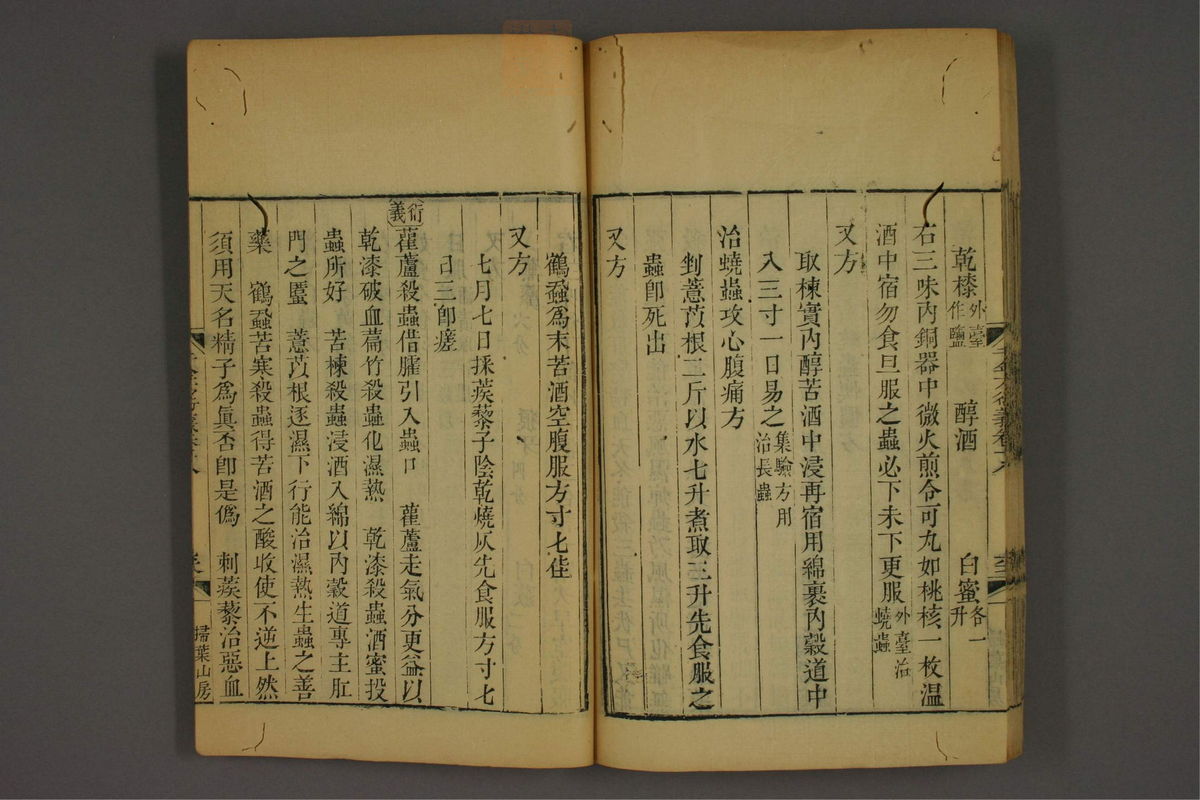 乾漆外臺作鹽　醇酒　白蜜各一升
右三味内銅器中微火煎令可丸如桃核一枚温
酒中宿勿食旦服之蟲必下未下更服外臺治蟯蟲
又方
取楝實内醇苦酒中浸再宿用綿裹内穀道中
入三寸一日易之集驗方用治長蟲
治蟯蟲攻心腹痛方
剉薏苡根二斤以水七升煮取三升先食服之
蟲卽死出
又方
鶴蝨爲末苦酒空腹服方寸匕佳
又方
七月七日採蒺藜子陰乾燒灰先食服方寸匕
日三卽瘥
衍義
雚蘆殺蟲借臛引入蟲口　雚蘆走氣分更益以
乾漆破血萹竹殺蟲化濕熱　乾漆殺蟲酒蜜投
蟲所好　苦楝殺蟲浸酒入綿以内穀道專主肛
門之䘌　薏苡根逐濕下行能治濕熱生蟲之善
藥　鶴蝨苦寒殺蟲得苦酒之酸收使不逆上然
須用天名精子爲眞否卽是僞　刺蒺藜治惡血
掃葉山房